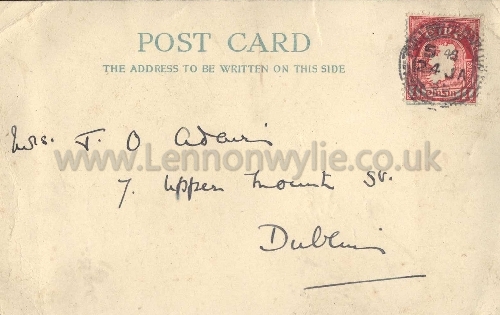 POST CARD
THE ADDRESS TO BE WRITTEN ON THIS SIDE
Mrs. T. O
www.Lennonwylie.co.uk
7. Upper Mount St.
Dublin